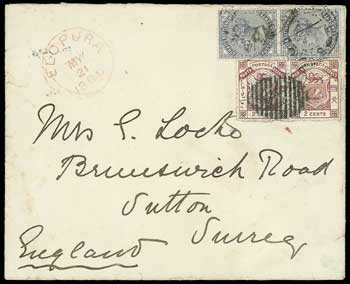 ELOPURA
MY
21
POSTAGE POSTAGE
2 CENTS
Mrs G. Locke
Brunswick Road
Sutton
Surrey
England